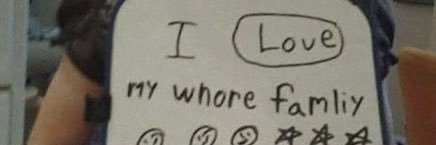 I Love
my whore famliy